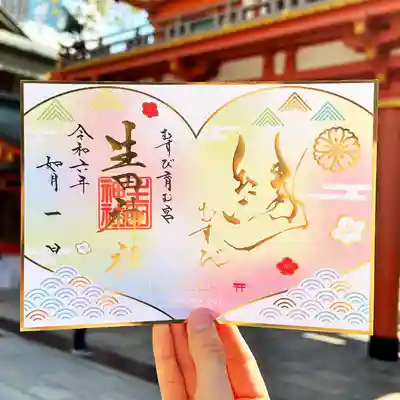 むすび
むすび育む宮
生田神社
令和六年
如月
一日